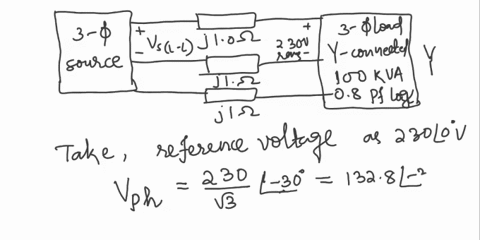 3-ϕ
source
+
-
Vs(L-L)
j1.0Ω
j1.0Ω
j1Ω
+
230V
rms-
3-ϕ Load
Y-connected
100 KVA
0.8 Pf lag
Y
Take, reference voltage as 230∠0°V
Vph = 230/√3 ∠-30° = 132.8∠-3